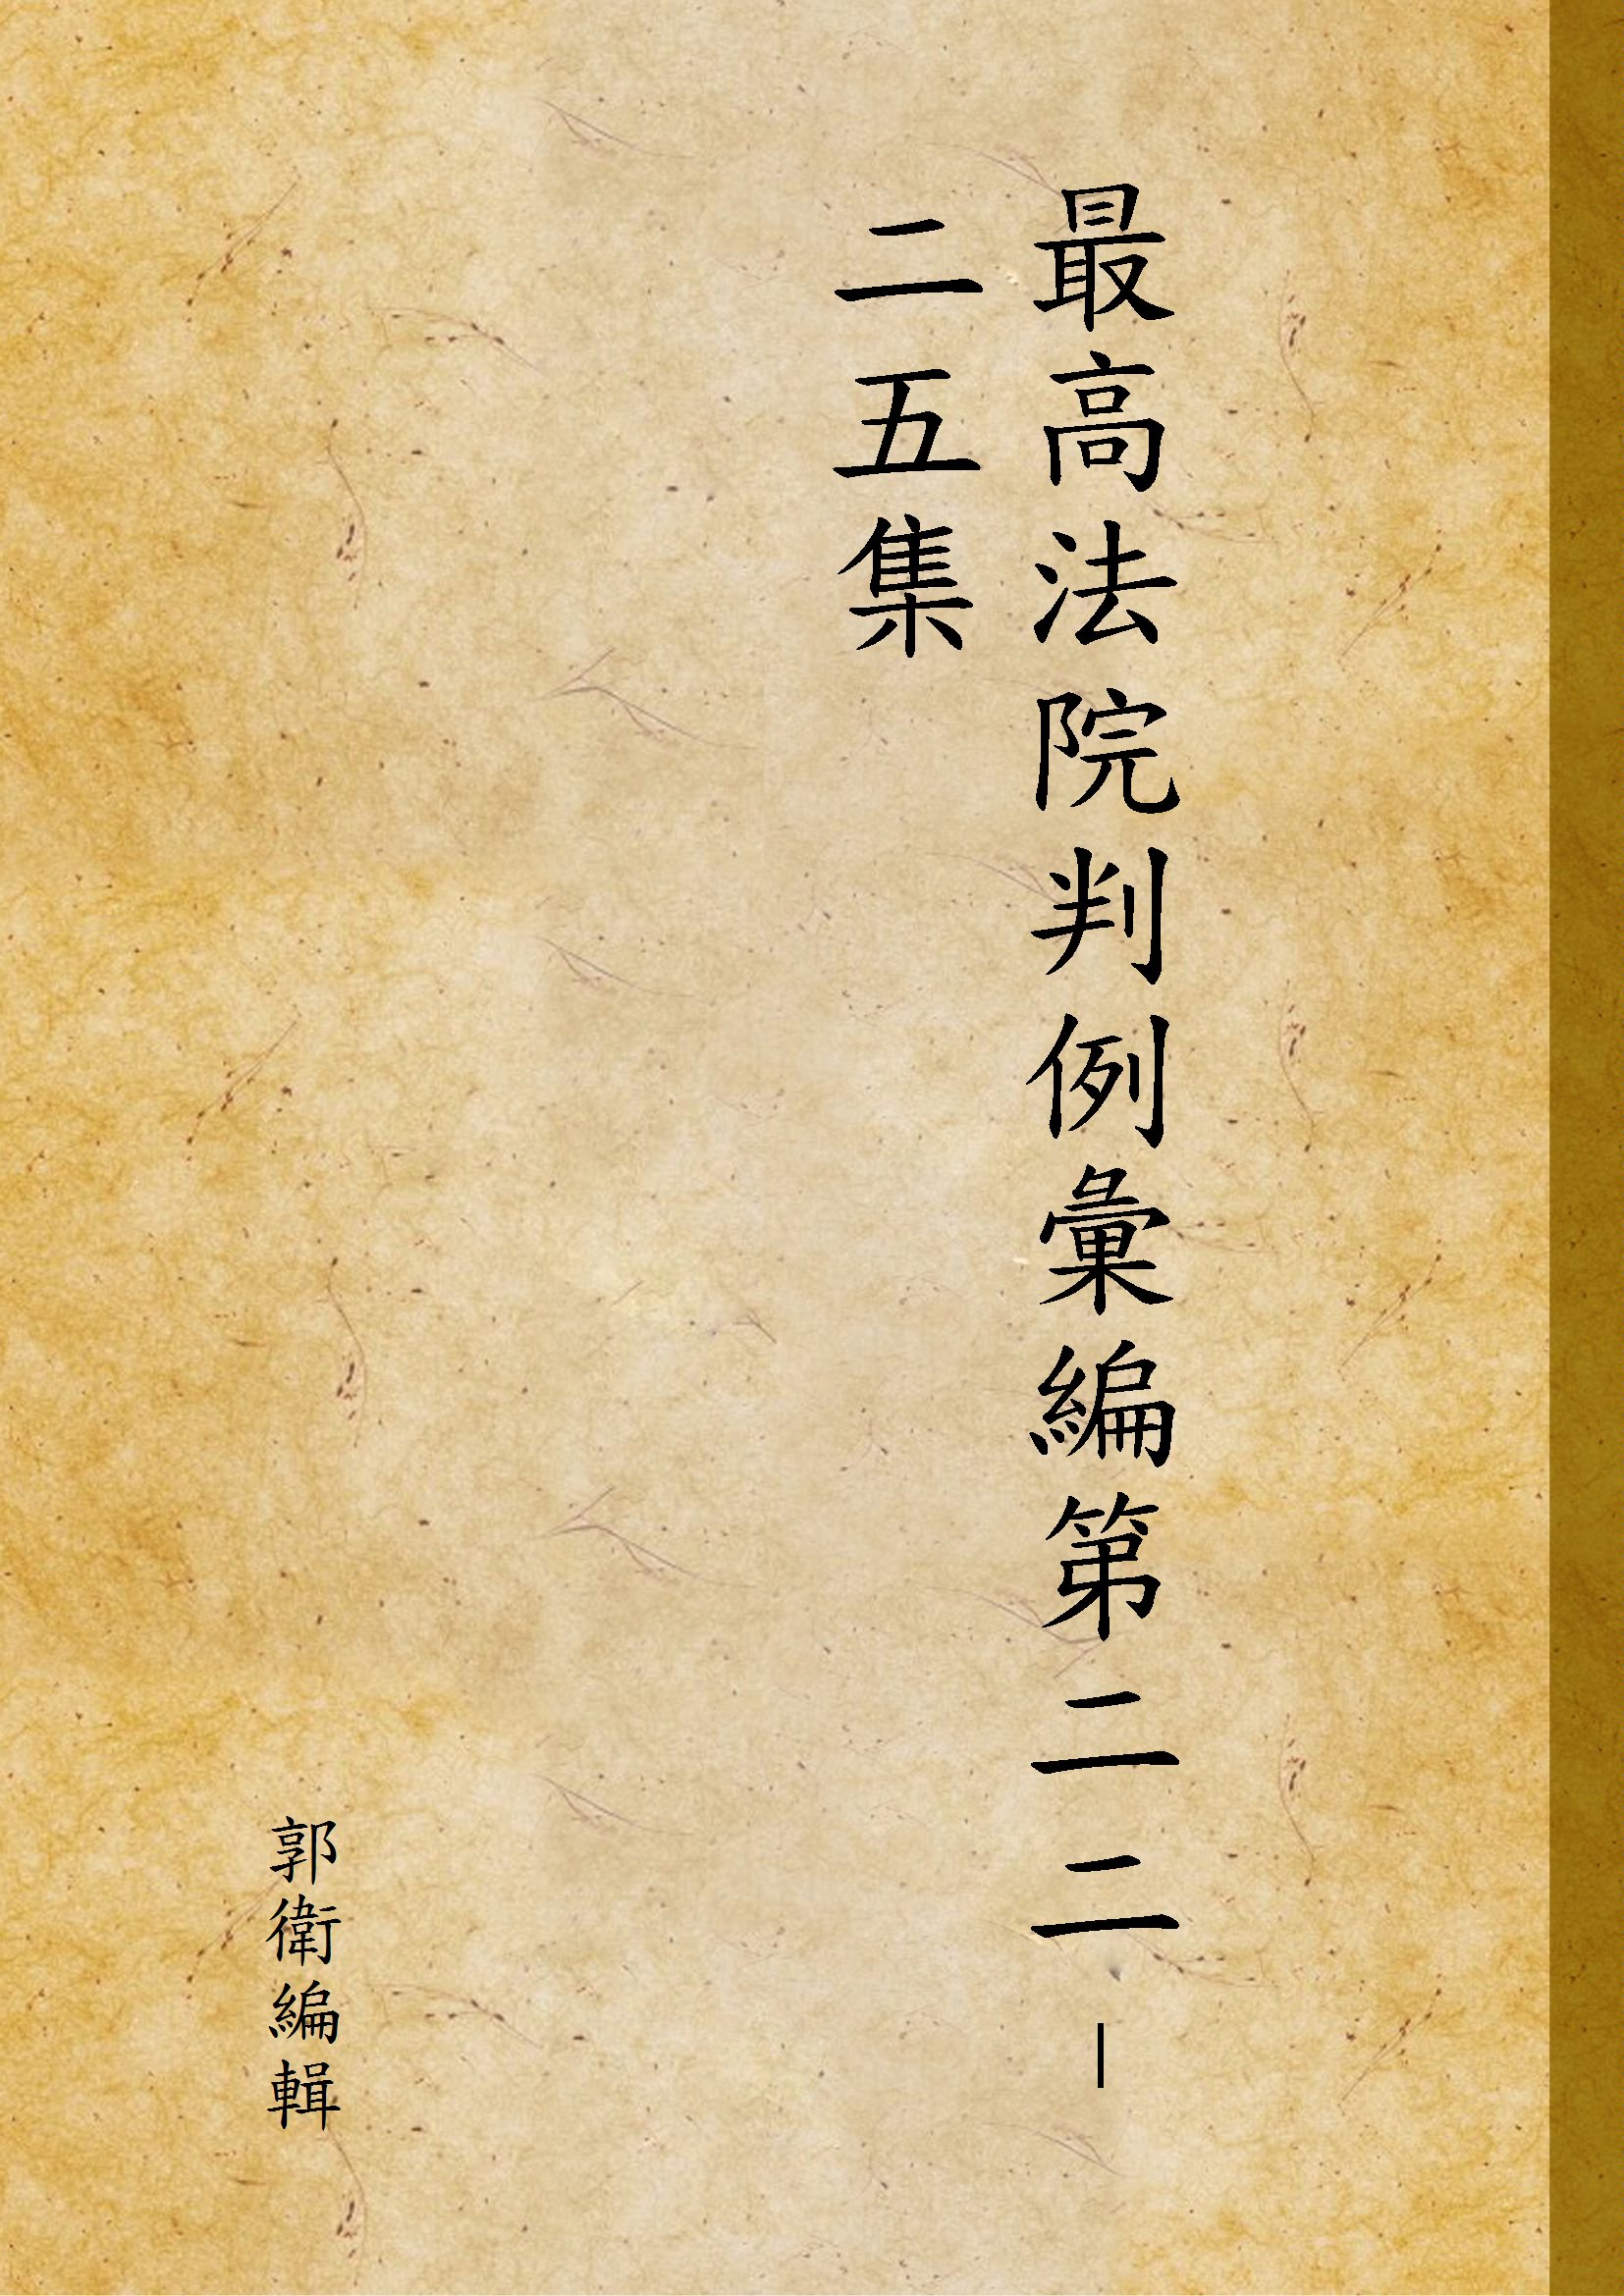 最高法院判例彙編第二二—
二五集
郭衛編輯